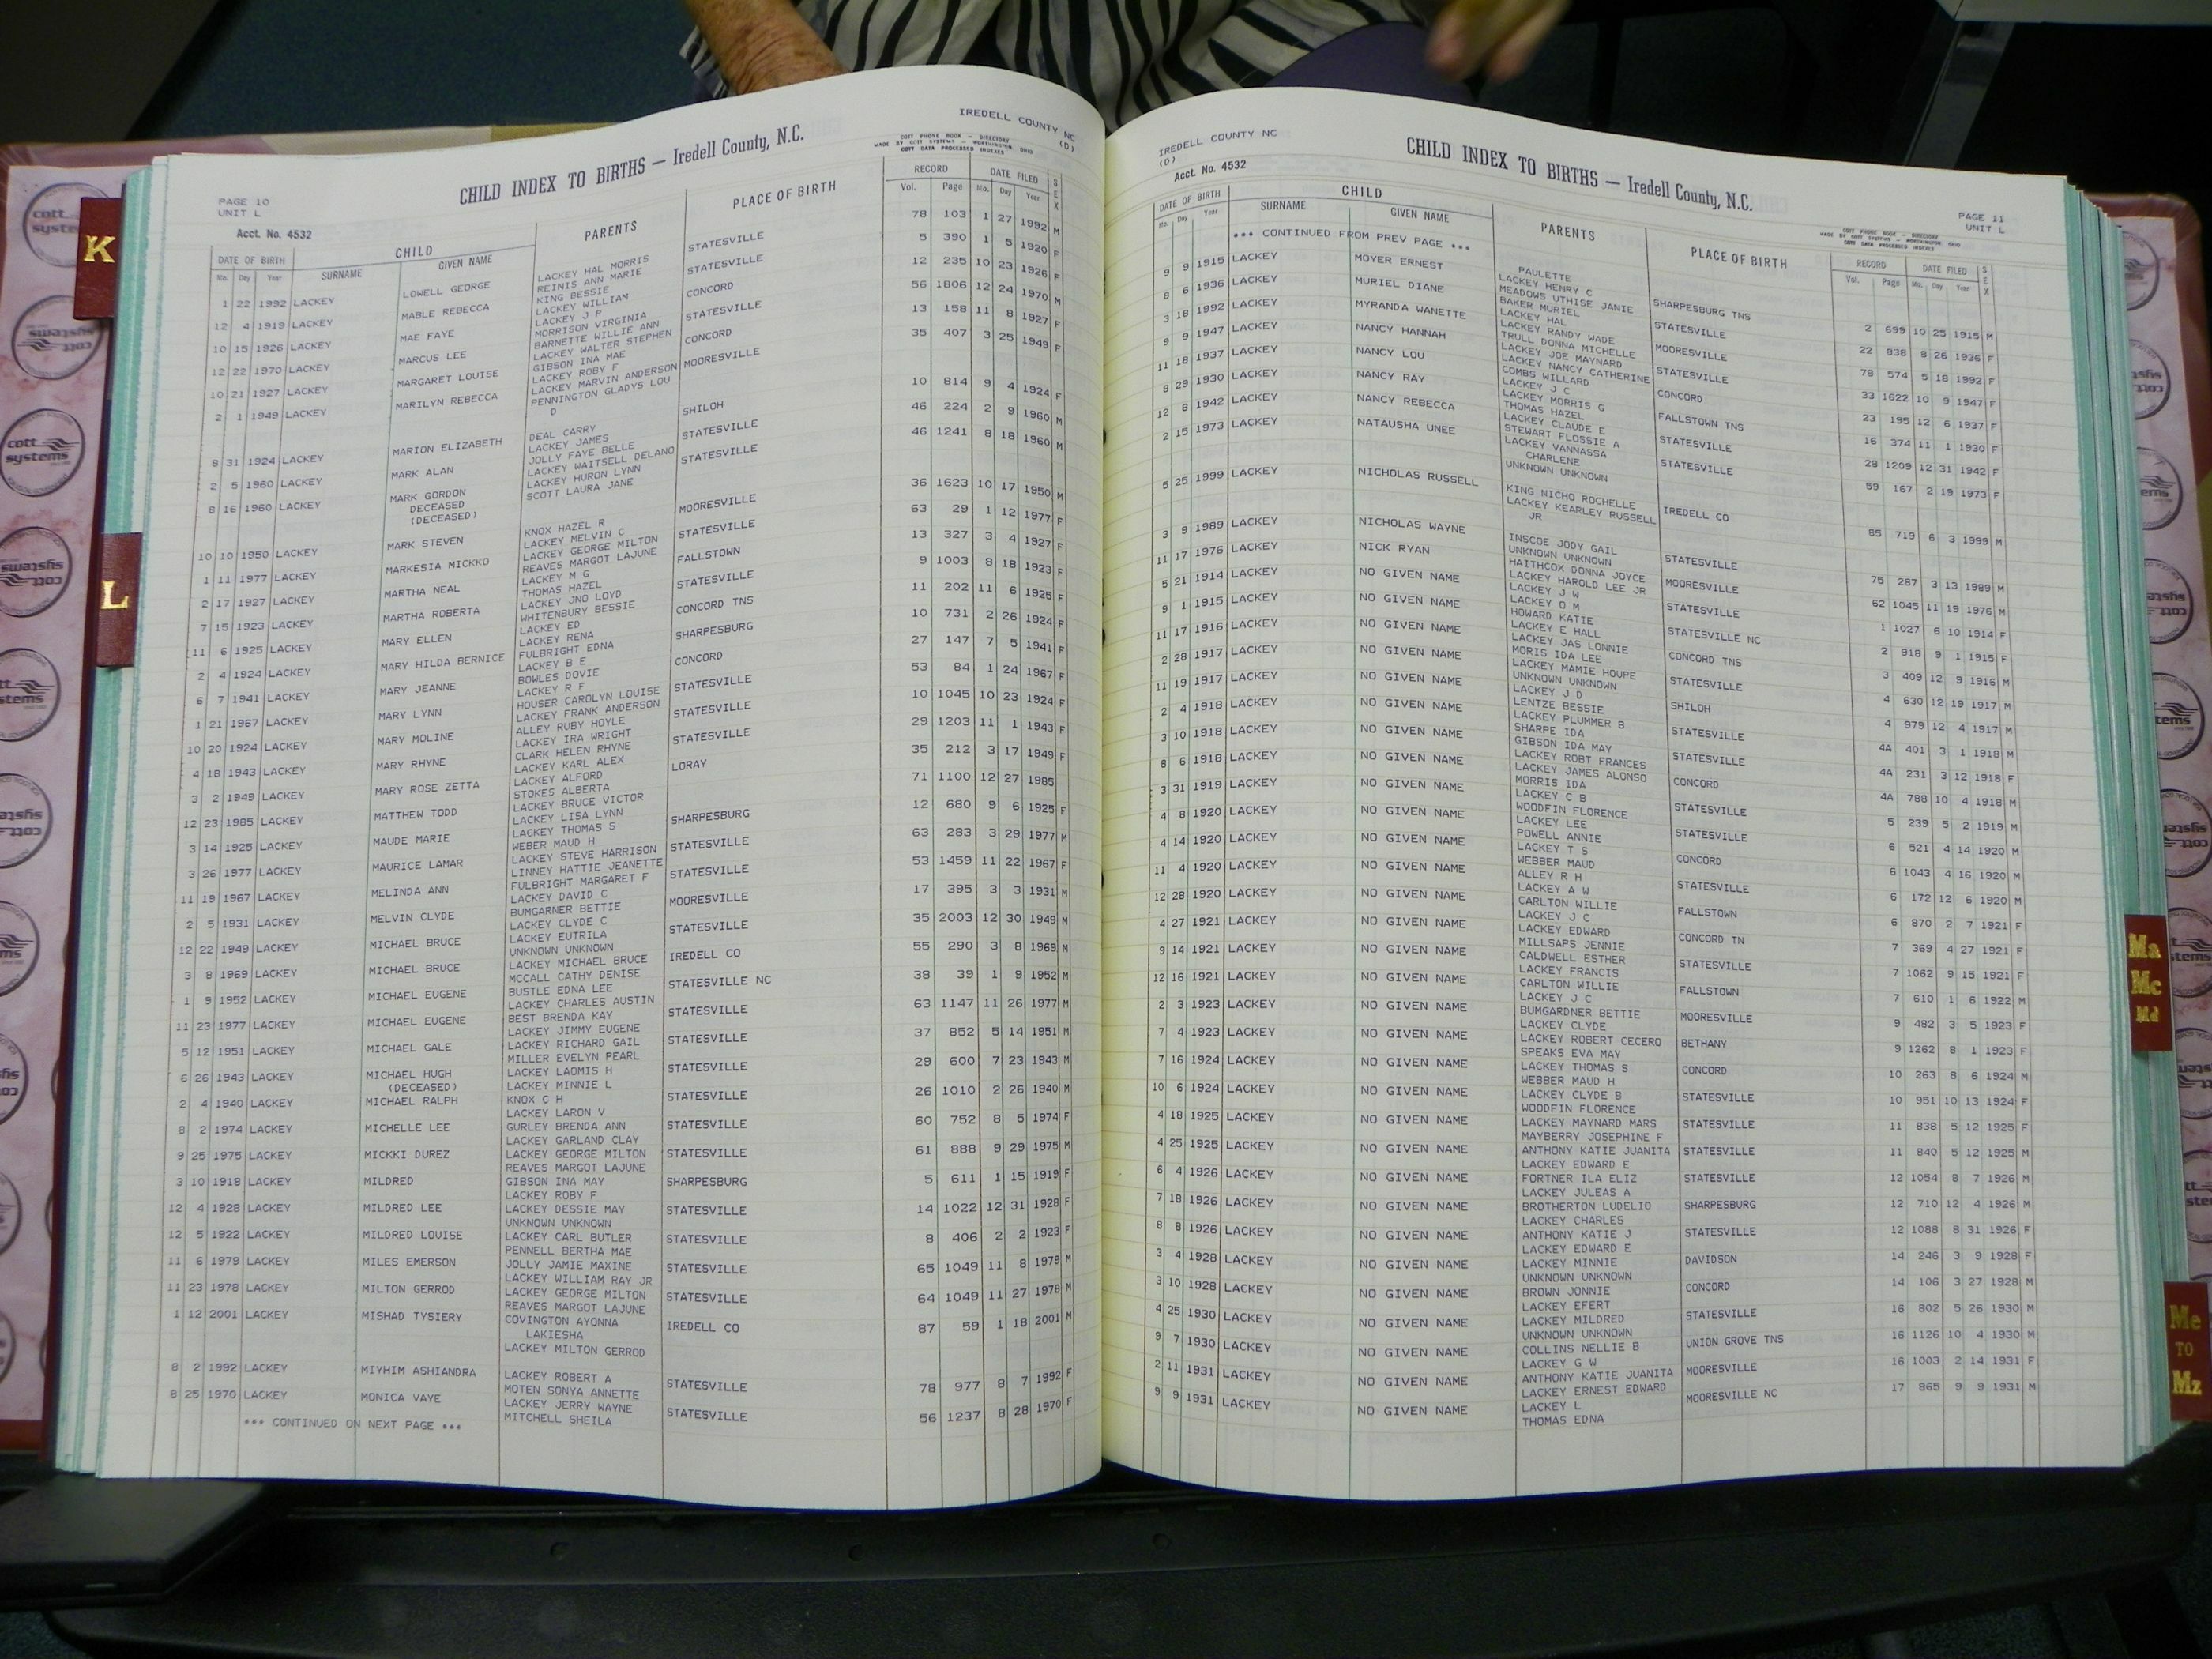 K
L
Ma
Mc
Md
Me
TO
Mz
cott systems
IREDELL COUNTY NC
(D)
CHILD INDEX TO BIRTHS — Iredell County, N.C.
COTT PHONE BOOK — DIRECTORY
MADE BY COTT SYSTEMS — WORTHINGTON, OHIO
COTT DATA PROCESSED INDEXES
PAGE 10
UNIT L
Acct. No. 4532
DATE OF BIRTH CHILD PARENTS PLACE OF BIRTH RECORD DATE FILED SEX
Mo. Day Year SURNAME GIVEN NAME Vol. Page Mo. Day Year
1 22 1992 LACKEY LOWELL GEORGE LACKEY HAL MORRIS STATESVILLE 78 103 1 27 1992 M
REINIS ANN MARIE
12 4 1919 LACKEY MABLE REBECCA KING BESSIE STATESVILLE 5 390 1 5 1920 F
LACKEY WILLIAM
10 15 1926 LACKEY MAE FAYE LACKEY J P CONCORD 12 235 10 23 1926 F
MORRISON VIRGINIA
12 22 1970 LACKEY MARCUS LEE BARNETTE WILLIE ANN STATESVILLE 56 1806 12 24 1970 M
LACKEY WALTER STEPHEN
10 21 1927 LACKEY MARGARET LOUISE GIBSON INA MAE CONCORD 13 158 11 8 1927 F
LACKEY ROBY F
2 1 1949 LACKEY MARILYN REBECCA LACKEY MARVIN ANDERSON MOORESVILLE 35 407 3 25 1949 F
PENNINGTON GLADYS LOU
D
8 31 1924 LACKEY MARION ELIZABETH DEAL CARRY SHILOH 10 814 9 4 1924 F
LACKEY JAMES
2 5 1960 LACKEY MARK ALAN JOLLY FAYE BELLE STATESVILLE 46 224 2 9 1960 M
LACKEY WAITSELL DELANO
8 16 1960 LACKEY MARK GORDON LACKEY HURON LYNN STATESVILLE 46 1241 8 18 1960 M
DECEASED SCOTT LAURA JANE
(DECEASED)
10 10 1950 LACKEY MARK STEVEN KNOX HAZEL R MOORESVILLE 36 1623 10 17 1950 M
LACKEY MELVIN C
1 11 1977 LACKEY MARKESIA MICKKO LACKEY GEORGE MILTON STATESVILLE 63 29 1 12 1977 F
REAVES MARGOT LAJUNE
2 17 1927 LACKEY MARTHA NEAL LACKEY M G FALLSTOWN 13 327 3 4 1927 F
THOMAS HAZEL
7 15 1923 LACKEY MARTHA ROBERTA LACKEY JNO LOYD STATESVILLE 9 1003 8 18 1923 F
WHITENBURY BESSIE
11 6 1925 LACKEY MARY ELLEN LACKEY ED CONCORD TNS 11 202 11 6 1925 F
LACKEY RENA
2 4 1924 LACKEY MARY HILDA BERNICE FULBRIGHT EDNA SHARPESBURG 10 731 2 26 1924 F
LACKEY B E
6 7 1941 LACKEY MARY JEANNE BOWLES DOVIE CONCORD 27 147 7 5 1941 F
LACKEY R F
1 21 1967 LACKEY MARY LYNN HOUSER CAROLYN LOUISE STATESVILLE 53 84 1 24 1967 F
LACKEY FRANK ANDERSON
10 20 1924 LACKEY MARY MOLINE ALLEY RUBY HOYLE STATESVILLE 10 1045 10 23 1924 F
LACKEY IRA WRIGHT
4 18 1943 LACKEY MARY RHYNE CLARK HELEN RHYNE STATESVILLE 29 1203 11 1 1943 F
LACKEY KARL ALEX
3 2 1949 LACKEY MARY ROSE ZETTA LACKEY ALFORD LORAY 35 212 3 17 1949 F
STOKES ALBERTA
12 23 1985 LACKEY MATTHEW TODD LACKEY BRUCE VICTOR 71 1100 12 27 1985
LACKEY LISA LYNN
3 14 1925 LACKEY MAUDE MARIE LACKEY THOMAS S SHARPESBURG 12 680 9 6 1925 F
WEBER MAUD H
3 26 1977 LACKEY MAURICE LAMAR LACKEY STEVE HARRISON STATESVILLE 63 283 3 29 1977 M
LINNEY HATTIE JEANETTE
11 19 1967 LACKEY MELINDA ANN FULBRIGHT MARGARET F STATESVILLE 53 1459 11 22 1967 F
LACKEY DAVID C
2 5 1931 LACKEY MELVIN CLYDE BUMGARNER BETTIE MOORESVILLE 17 395 3 3 1931 M
LACKEY CLYDE C
12 22 1949 LACKEY MICHAEL BRUCE LACKEY EUTRILA STATESVILLE 35 2003 12 30 1949 M
UNKNOWN UNKNOWN
3 8 1969 LACKEY MICHAEL BRUCE LACKEY MICHAEL BRUCE IREDELL CO 55 290 3 8 1969 M
MCCALL CATHY DENISE
1 9 1952 LACKEY MICHAEL EUGENE BUSTLE EDNA LEE STATESVILLE NC 38 39 1 9 1952 M
LACKEY CHARLES AUSTIN
11 23 1977 LACKEY MICHAEL EUGENE BEST BRENDA KAY STATESVILLE 63 1147 11 26 1977 M
LACKEY JIMMY EUGENE
5 12 1951 LACKEY MICHAEL GALE LACKEY RICHARD GAIL STATESVILLE 37 852 5 14 1951 M
MILLER EVELYN PEARL
6 26 1943 LACKEY MICHAEL HUGH LACKEY LAOMIS H STATESVILLE 29 600 7 23 1943 M
(DECEASED) LACKEY MINNIE L
2 4 1940 LACKEY MICHAEL RALPH KNOX C H STATESVILLE 26 1010 2 26 1940 M
LACKEY LARON V
8 2 1974 LACKEY MICHELLE LEE GURLEY BRENDA ANN STATESVILLE 60 752 8 5 1974 F
LACKEY GARLAND CLAY
9 25 1975 LACKEY MICKKI DUREZ LACKEY GEORGE MILTON STATESVILLE 61 888 9 29 1975 M
REAVES MARGOT LAJUNE
3 10 1918 LACKEY MILDRED GIBSON INA MAY SHARPESBURG 5 611 1 15 1919 F
LACKEY ROBY F
12 4 1928 LACKEY MILDRED LEE LACKEY DESSIE MAY STATESVILLE 14 1022 12 31 1928 F
UNKNOWN UNKNOWN
12 5 1922 LACKEY MILDRED LOUISE LACKEY CARL BUTLER STATESVILLE 8 406 2 2 1923 F
PENNELL BERTHA MAE
11 6 1979 LACKEY MILES EMERSON JOLLY JAMIE MAXINE STATESVILLE 65 1049 11 8 1979 M
LACKEY WILLIAM RAY JR
11 23 1978 LACKEY MILTON GERROD LACKEY GEORGE MILTON STATESVILLE 64 1049 11 27 1978 M
REAVES MARGOT LAJUNE
1 12 2001 LACKEY MISHAD TYSIERY COVINGTON AYONNA IREDELL CO 87 59 1 18 2001 M
LAKIESHA
LACKEY MILTON GERROD
8 2 1992 LACKEY MIYHIM ASHIANDRA LACKEY ROBERT A STATESVILLE 78 977 8 7 1992 F
MOTEN SONYA ANNETTE
8 25 1970 LACKEY MONICA VAYE LACKEY JERRY WAYNE STATESVILLE 56 1237 8 28 1970 F
MITCHELL SHEILA
*** CONTINUED ON NEXT PAGE ***
IREDELL COUNTY NC
(D)
Acct. No. 4532
CHILD INDEX TO BIRTHS — Iredell County, N.C.
PAGE 11
UNIT L
COTT PHONE BOOK — DIRECTORY
MADE BY COTT SYSTEMS — WORTHINGTON, OHIO
COTT DATA PROCESSED INDEXES
DATE OF BIRTH CHILD PARENTS PLACE OF BIRTH RECORD DATE FILED SEX
Mo. Day Year SURNAME GIVEN NAME Vol. Page Mo. Day Year
*** CONTINUED FROM PREV PAGE ***
PAULETTE
9 9 1915 LACKEY MOYER ERNEST LACKEY HENRY C SHARPESBURG TNS 2 699 10 25 1915 M
MEADOWS UTHISE JANIE
8 6 1936 LACKEY MURIEL DIANE BAKER MURIEL STATESVILLE 22 838 8 26 1936 F
LACKEY HAL
3 18 1992 LACKEY MYRANDA WANETTE LACKEY RANDY WADE MOORESVILLE 78 574 5 18 1992 F
TRULL DONNA MICHELLE
9 9 1947 LACKEY NANCY HANNAH LACKEY JOE MAYNARD STATESVILLE 33 1622 10 9 1947 F
LACKEY NANCY CATHERINE
11 18 1937 LACKEY NANCY LOU COMBS WILLARD CONCORD 23 195 12 6 1937 F
LACKEY J C
8 29 1930 LACKEY NANCY RAY LACKEY MORRIS G FALLSTOWN TNS 16 374 11 1 1930 F
THOMAS HAZEL
12 8 1942 LACKEY NANCY REBECCA LACKEY CLAUDE E STATESVILLE 28 1209 12 31 1942 F
STEWART FLOSSIE A
2 15 1973 LACKEY NATAUSHA UNEE LACKEY VANNASSA STATESVILLE 59 167 2 19 1973 F
CHARLENE
UNKNOWN UNKNOWN
5 25 1999 LACKEY NICHOLAS RUSSELL KING NICHO ROCHELLE IREDELL CO 85 719 6 3 1999 M
LACKEY KEARLEY RUSSELL
JR
3 9 1989 LACKEY NICHOLAS WAYNE INSCOE JODY GAIL STATESVILLE 75 287 3 13 1989 M
UNKNOWN UNKNOWN
11 17 1976 LACKEY NICK RYAN HAITHCOX DONNA JOYCE MOORESVILLE 62 1045 11 19 1976 M
LACKEY HAROLD LEE JR
5 21 1914 LACKEY NO GIVEN NAME LACKEY J W STATESVILLE 1 1027 6 10 1914 F
9 1 1915 LACKEY NO GIVEN NAME LACKEY O M STATESVILLE NC 2 918 9 1 1915 F
HOWARD KATIE
11 17 1916 LACKEY NO GIVEN NAME LACKEY E HALL CONCORD TNS 3 409 12 9 1916 M
2 28 1917 LACKEY NO GIVEN NAME LACKEY JAS LONNIE STATESVILLE 4 630 12 19 1917 M
MORIS IDA LEE
11 19 1917 LACKEY NO GIVEN NAME LACKEY MAMIE HOUPE SHILOH 4 979 12 4 1917 M
UNKNOWN UNKNOWN
2 4 1918 LACKEY NO GIVEN NAME LACKEY J D STATESVILLE 4A 401 3 1 1918 M
LENTZE BESSIE
3 10 1918 LACKEY NO GIVEN NAME LACKEY PLUMMER B STATESVILLE 4A 231 3 12 1918 F
SHARPE IDA
8 6 1918 LACKEY NO GIVEN NAME GIBSON IDA MAY CONCORD 4A 788 10 4 1918 M
LACKEY ROBT FRANCES
3 31 1919 LACKEY NO GIVEN NAME LACKEY JAMES ALONSO STATESVILLE 5 239 5 2 1919 M
MORRIS IDA
4 8 1920 LACKEY NO GIVEN NAME LACKEY C B STATESVILLE 6 521 4 14 1920 M
WOODFIN FLORENCE
4 14 1920 LACKEY NO GIVEN NAME LACKEY LEE CONCORD 6 1043 4 16 1920 M
POWELL ANNIE
11 4 1920 LACKEY NO GIVEN NAME LACKEY T S STATESVILLE 6 172 12 6 1920 M
WEBBER MAUD
12 28 1920 LACKEY NO GIVEN NAME ALLEY R H FALLSTOWN 6 870 2 7 1921 F
LACKEY A W
4 27 1921 LACKEY NO GIVEN NAME CARLTON WILLIE CONCORD TN 7 369 4 27 1921 F
LACKEY J C
9 14 1921 LACKEY NO GIVEN NAME LACKEY EDWARD STATESVILLE 7 1062 9 15 1921 F
MILLSAPS JENNIE
12 16 1921 LACKEY NO GIVEN NAME CALDWELL ESTHER FALLSTOWN 7 610 1 6 1922 M
LACKEY FRANCIS
2 3 1923 LACKEY NO GIVEN NAME CARLTON WILLIE MOORESVILLE 9 482 3 5 1923 F
LACKEY J C
7 4 1923 LACKEY NO GIVEN NAME BUMGARDNER BETTIE BETHANY 9 1262 8 1 1923 F
LACKEY CLYDE
7 16 1924 LACKEY NO GIVEN NAME LACKEY ROBERT CECERO CONCORD 10 263 8 6 1924 M
SPEAKS EVA MAY
10 6 1924 LACKEY NO GIVEN NAME LACKEY THOMAS S STATESVILLE 10 951 10 13 1924 F
WEBBER MAUD H
4 18 1925 LACKEY NO GIVEN NAME LACKEY CLYDE B STATESVILLE 11 838 5 12 1925 F
WOODFIN FLORENCE
4 25 1925 LACKEY NO GIVEN NAME LACKEY MAYNARD MARS STATESVILLE 11 840 5 12 1925 M
MAYBERRY JOSEPHINE F
6 4 1926 LACKEY NO GIVEN NAME ANTHONY KATIE JUANITA STATESVILLE 12 1054 8 7 1926 M
LACKEY EDWARD E
7 18 1926 LACKEY NO GIVEN NAME FORTNER ILA ELIZ SHARPESBURG 12 710 12 4 1926 M
LACKEY JULEAS A
8 8 1926 LACKEY NO GIVEN NAME BROTHERTON LUDELIO STATESVILLE 12 1088 8 31 1926 F
LACKEY CHARLES
3 4 1928 LACKEY NO GIVEN NAME ANTHONY KATIE J DAVIDSON 14 246 3 9 1928 F
LACKEY EDWARD E
3 10 1928 LACKEY NO GIVEN NAME LACKEY MINNIE CONCORD 14 106 3 27 1928 M
UNKNOWN UNKNOWN
4 25 1930 LACKEY NO GIVEN NAME BROWN JONNIE STATESVILLE 16 802 5 26 1930 M
LACKEY EFERT
9 7 1930 LACKEY NO GIVEN NAME LACKEY MILDRED UNION GROVE TNS 16 1126 10 4 1930 M
UNKNOWN UNKNOWN
2 11 1931 LACKEY NO GIVEN NAME COLLINS NELLIE B MOORESVILLE 16 1003 2 14 1931 F
LACKEY G W
9 9 1931 LACKEY NO GIVEN NAME ANTHONY KATIE JUANITA MOORESVILLE NC 17 865 9 9 1931 M
LACKEY ERNEST EDWARD
NO GIVEN NAME LACKEY L
THOMAS EDNA